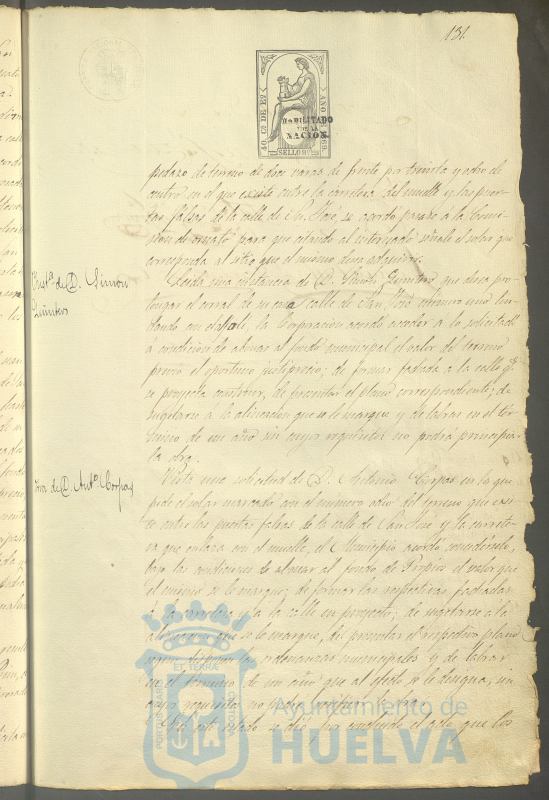 131.
40. Cs DE Eº
AÑO 1869.
HABILITADO
POR LA
NACION.
SELLO 9º
pedazo de terreno de doce varas de frente por treinta y ocho de
centro en el que existe entre la carretera del muelle y las puer-
tas falsas de la calle de Sn. José, se acordó pasase á la Comi-
sion de ornato para que citando al interesado señale el solar que
corresponda al sitio que el mismo desea adquirir.
Inst.ª de D. Simon
Quintero
Leida una instancia de D. Simon Quintero que desea pro-
longar el corral de su casa calle de San José número uno lin-
dando con el la Corporacion acordó acceder a lo solicitado
á condicion de abonar al fondo municipal el valor del terreno
previo el oportuno justiprecio; de formar fachada a la calle qe.
se proyecta construir, de presentar el plano correspondiente; de
sugetarse a la alineacion que se le marque y de labrar en el tér-
mino de un año sin cuyos requisitos no podrá principiar
la obra.
Otra de D. Antº. Corpas
Vista una solicitud de D. Antonio Corpas en la que
pide el solar marcado con el número ocho del terreno que exis-
te entre las puertas falsas de la calle de San José y la carrete-
ra que enlaza con el muelle, el Municipio acordó concedérselo,
bajo las condiciones de abonar al fondo de Propios el valor que
el mismo se le marque; de formar las respectivas fachadas
á la carretera y a la calle en proyecto; de sugetarse a la
alineacion que se le marque, de presentar el respectivo plano
segun disponen las ordenanzas municipales y de labrar
en el termino de un año que al efecto se le designa, sin
cuyos requisitos no podrá principiar la obra.
En este estado se dió por concluido el acto que los
PORTUS MARIS
ET TERRÆ
CUSTODIA
Ayuntamiento de
HUELVA